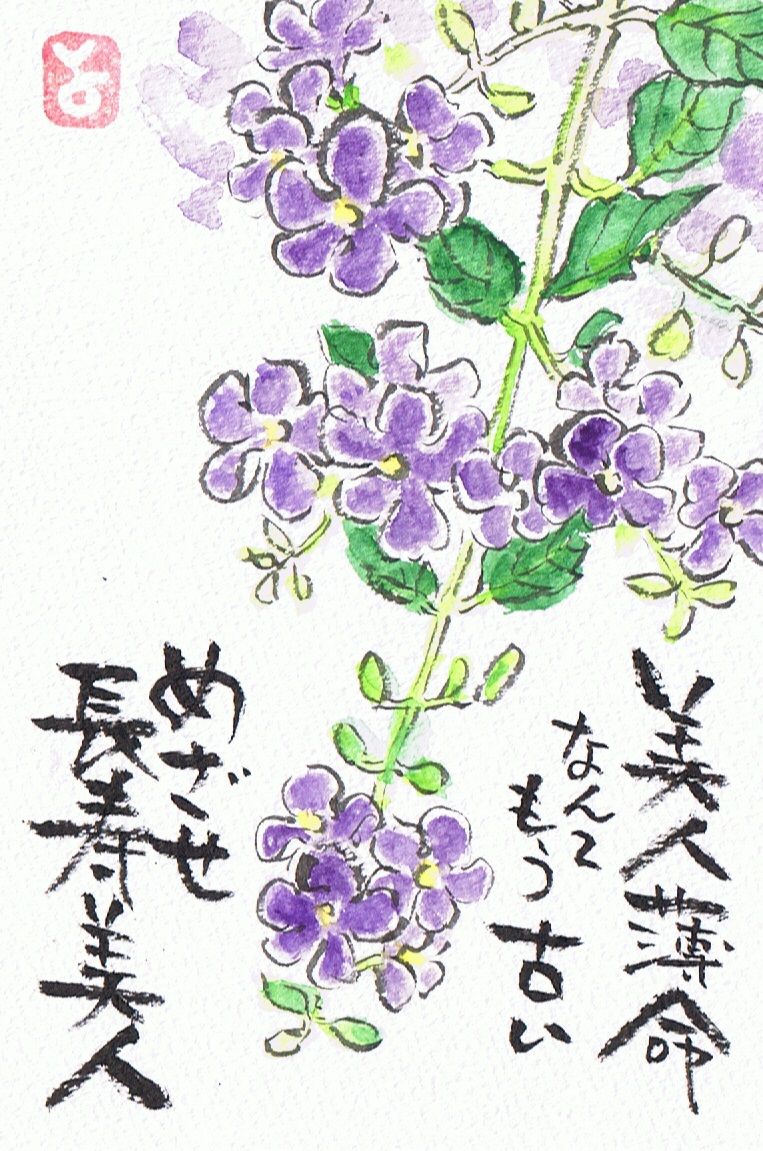 美人薄命
なんて
もう古い
めざせ
長寿美人